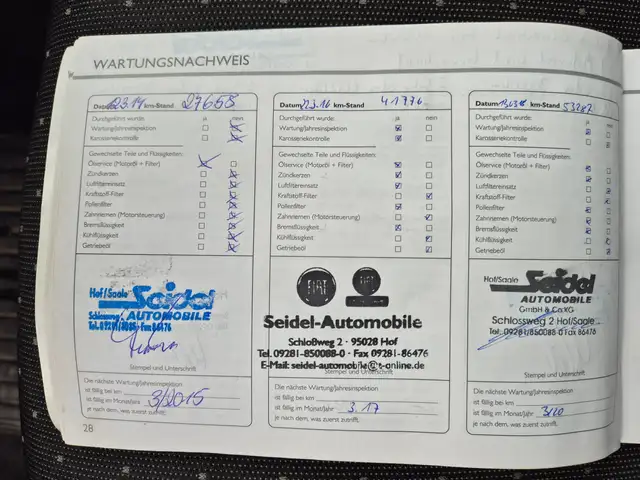 WARTUNGSNACHWEIS
Datum 3.14 km-Stand 27668
Durchgeführt wurde: ja nein
Wartung/Jahresinspektion
Karosseriekontrolle
Gewechselte Teile und Flüssigkeiten:
Ölservice (Motoröl + Filter)
Zündkerzen
Luftfiltereinsatz
Kraftstoff-Filter
Pollenfilter
Zahnriemen (Motorsteuerung)
Bremsflüssigkeit
Kühlflüssigkeit
Getriebeöl
Hof/Saale Seidel
AUTOMOBILE
Stempel und Unterschrift
Die nächste Wartung/Jahresinspektion
ist fällig bei km
ist fällig im Monat/Jahr 3/2015
je nach dem, was zuerst zutrifft.
28
Datum km-Stand 41776
Durchgeführt wurde: ja nein
Wartung/Jahresinspektion
Karosseriekontrolle
Gewechselte Teile und Flüssigkeiten:
Ölservice (Motoröl + Filter)
Zündkerzen
Luftfiltereinsatz
Kraftstoff-Filter
Pollenfilter
Zahnriemen (Motorsteuerung)
Bremsflüssigkeit
Kühlflüssigkeit
Getriebeöl
FIAT
Seidel-Automobile
Schloßweg 2 · 95028 Hof
Tel. 09281-850088-0 · Fax 09281-86476
E-Mail: seidel-automobile@t-online.de
Stempel und Unterschrift
Die nächste Wartung/Jahresinspektion
ist fällig bei km
ist fällig im Monat/Jahr 3.17
je nach dem, was zuerst zutrifft.
Datum km-Stand 53287
Durchgeführt wurde: ja nein
Wartung/Jahresinspektion
Karosseriekontrolle
Gewechselte Teile und Flüssigkeiten:
Ölservice (Motoröl + Filter)
Zündkerzen
Luftfiltereinsatz
Kraftstoff-Filter
Pollenfilter
Zahnriemen (Motorsteuerung)
Bremsflüssigkeit
Kühlflüssigkeit
Getriebeöl
Hof/Saale Seidel
AUTOMOBILE
GmbH & Co.KG
Schlossweg 2 Hof/Saale
Tel. 09281/850088-0 Fax 86476
Stempel und Unterschrift
Die nächste Wartung/Jahresinspektion
ist fällig bei km
ist fällig im Monat/Jahr 3/20
je nach dem, was zuerst zutrifft.